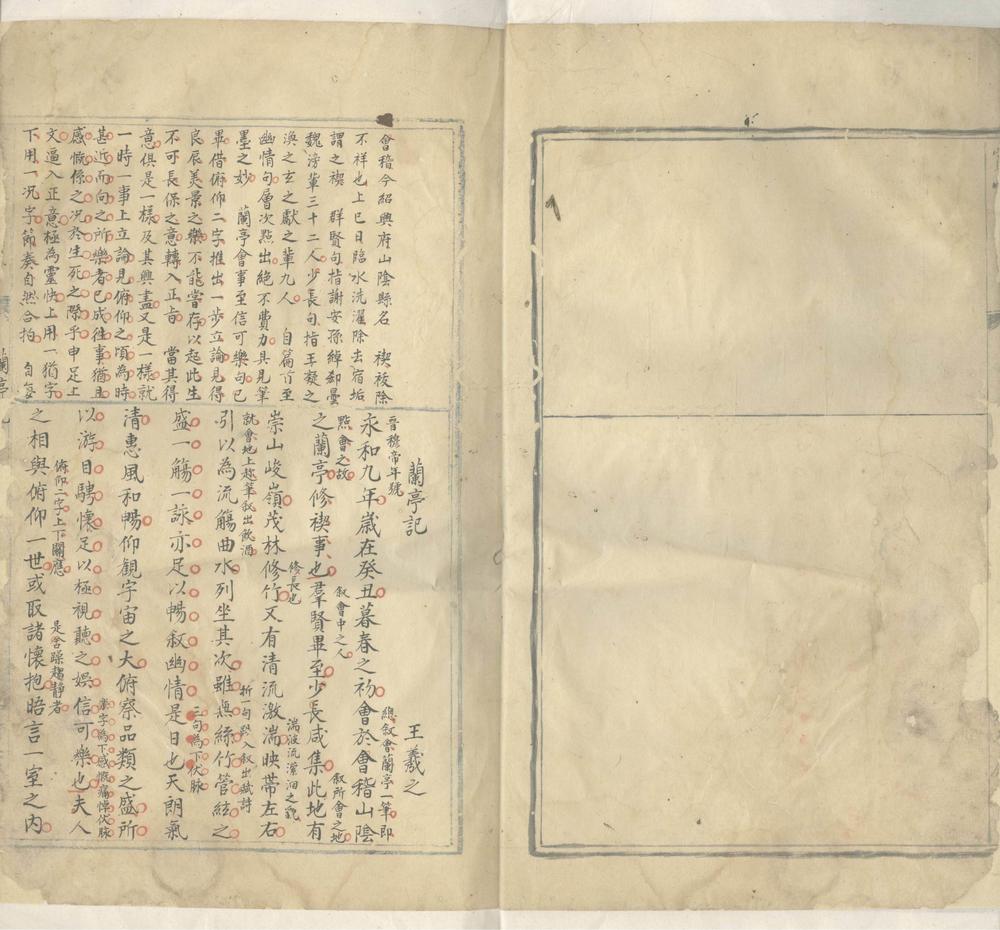 會稽今紹興府山陰縣名 禊祓除
不祥也上巳日臨水洗濯除去宿垢
謂之禊 群賢句指謝安孫綽郄曇
魏滂輩三十二人少長句指王凝之
渙之玄之獻之輩九人 自篇首至
幽情句層次點出絕不費力具見筆
墨之妙 蘭亭會事至信可樂句已
畢借俯仰二字推出一步立論見得
良辰美景之樂不能嘗存以起此生
不可長保之意轉入正旨 當其得
意俱是一樣及其興盡又是一樣就
一時一事上立論見俯仰之頃為時
甚近而向之所樂者已成往事猶且
感慨係之况於生死之際乎申足上
文逼入正意極為靈快上用一猶字
下用一况字節奏自然合拍 自每
蘭亭記 王羲之
晉穆帝年號 總叙會蘭亭一筆即
永和九年歲在癸丑暮春之初會於會稽山陰
點會之故 叙會中之人 叙所會之地
之蘭亭修禊事也羣賢畢至少長咸集此地有
修長也 湍波流瀠洄之貌
崇山峻嶺茂林修竹又有清流激湍映帶左右
就會地上趁筆叙出飲酒 折一句跌入叙出賦詩
引以為流觴曲水列坐其次雖無絲竹管絃之
二句為下伏脉
盛一觴一詠亦足以暢叙幽情是日也天朗氣
清惠風和暢仰觀宇宙之大俯察品類之盛所
樂字為下感慨痛悼伏脉
以游目騁懷足以極視聽之娛信可樂也夫人
俯仰二字上下關應 是舍躁趨静者
之相與俯仰一世或取諸懷抱晤言一室之內
蘭亭